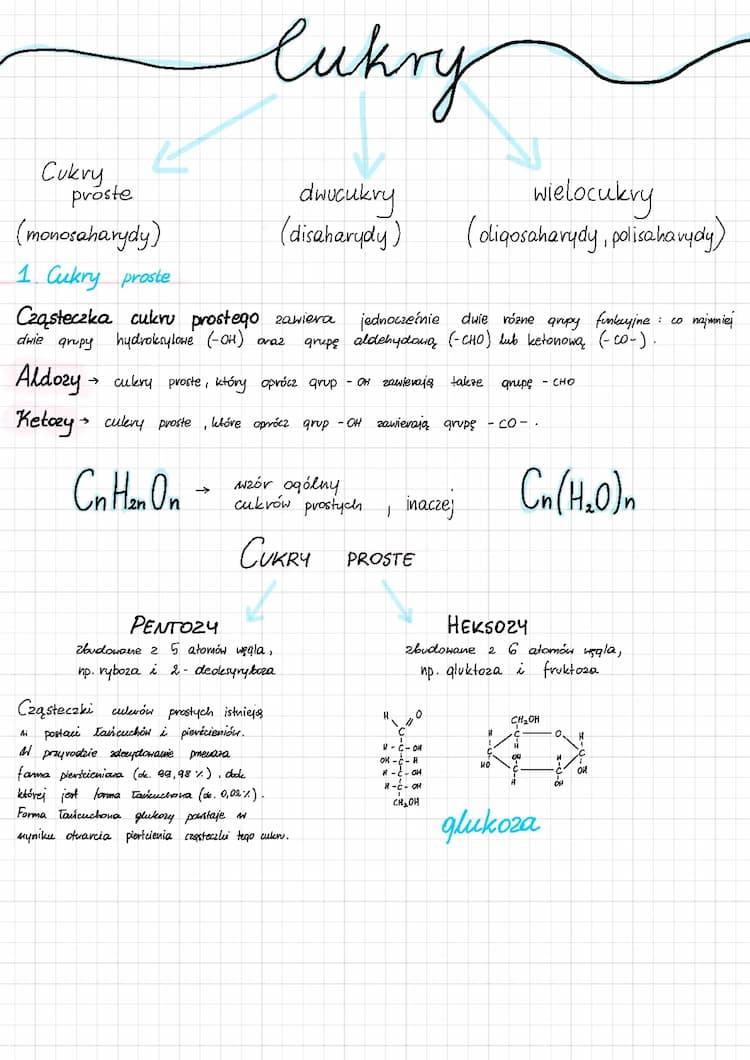 Cukry
Cukry
proste
(monosaharydy)
dwucukry
(disaharydy)
wielocukry
(oligosaharydy, polisaharydy)
1. Cukry proste
Cząsteczka cukru prostego zawiera jednocześnie dwie różne grupy funkcyjne : co najmniej
dwie grupy hydroksylowe (-OH) oraz grupę aldehydową (-CHO) lub ketonową (-CO-).
Aldozy → cukry proste, który oprócz grup -OH zawierają także grupę -CHO
Ketozy → cukry proste, które oprócz grup -OH zawierają grupę -CO-.
CnH2nOn → wzór ogólny
cukrów prostych , inaczej
Cn(H₂O)n
CUKRY PROSTE
PENTOZY
zbudowane z 5 atomów węgla,
np. ryboza i 2-deoksyryboza
HEKSOZY
zbudowane z 6 atomów węgla,
np. gluktoza i fruktoza
Cząsteczki cukrów prostych istnieją
w postaci łańcuchów i pierścieni.
W przyrodzie zdecydowanie przeważa
forma pierścieniowa (ok. 99,98%), obok
której jest forma łańcuchowa (ok. 0,02%).
Forma łańcuchowa glukozy powstaje w
wyniku otwarcia pierścienia cząsteczki tego cukru.
H O
C
H-C-OH
OH-C-H
H-C-OH
H-C-OH
CH₂OH
CH₂OH
H C O H
H
C OH H C
HO C C OH
H OH
glukoza